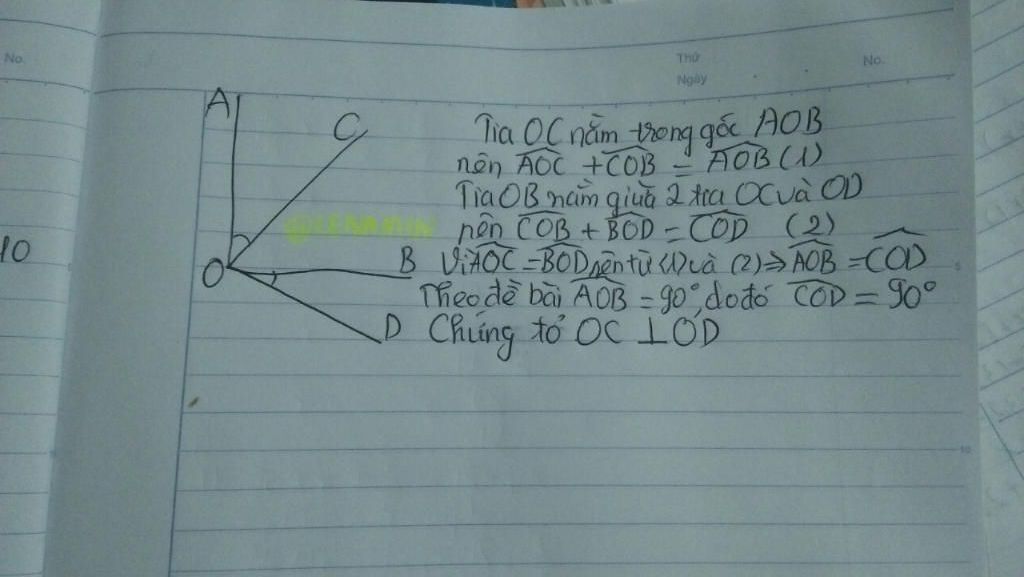 No.
Thứ
Ngày
No.
A
C
Tia OC nằm trong gốc AOB
nên AOC + COB = AOB (1)
Tia OB nằm giữa 2 tia OC và OD
nên COB + BOD = COD (2)
10
O
B
Vì AOC = BOD nên từ (1) và (2) ⇒ AOB = COD
Theo đề bài AOB = 90° do đó COD = 90°
D
Chứng tỏ OC ⊥ OD